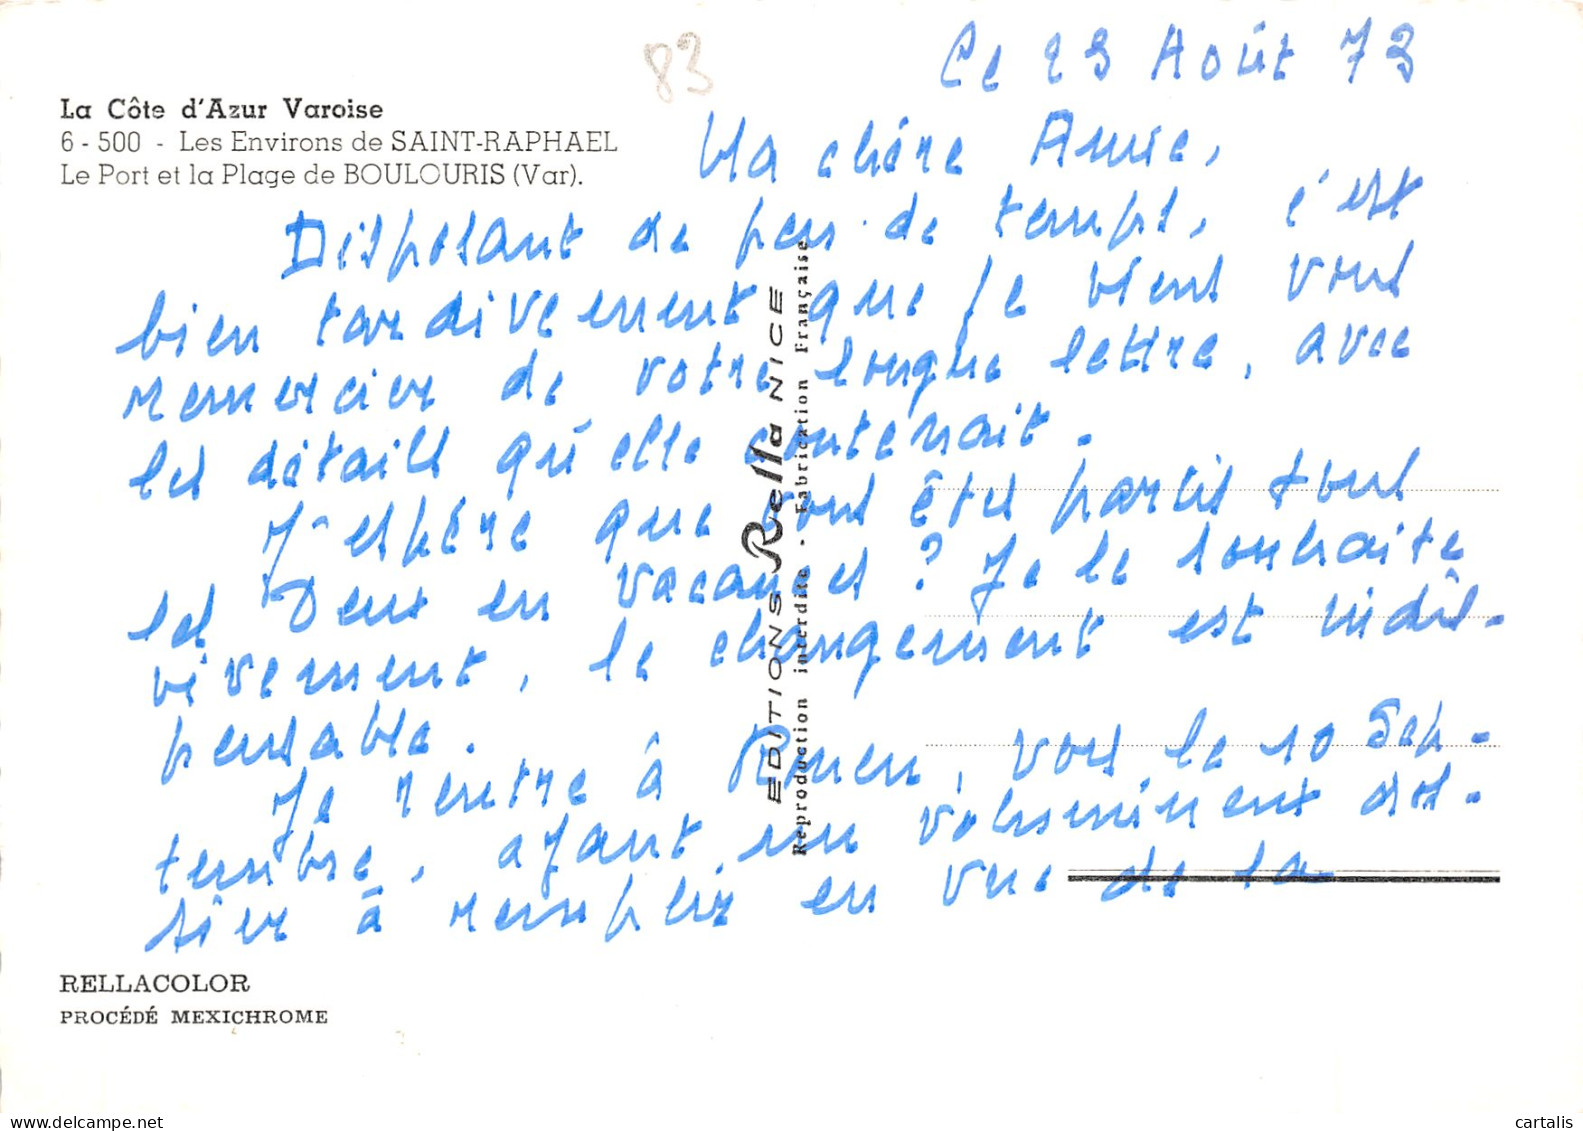 83
Ce 23 Août 73
La Côte d'Azur Varoise
6 - 500 - Les Environs de SAINT-RAPHAEL
Le Port et la Plage de BOULOURIS (Var).
Ma chère Amie,
Disposant de peu de temps, c'est
bien tardivement que je viens vous
remercier de votre longue lettre, avec
les détails qu'elle contenait.
J'espère que vous êtes partis tous
les Deux en vacances ? Je le souhaite
vivement, le changement est indis-
pensable.
Je rentre à Rouen, vers le 10 Sep-
tembre, ayant un volumineux dos-
sier à remplir en vue de la
EDITIONS Rella NICE
Reproduction interdite - Fabrication Française
RELLACOLOR
PROCÉDÉ MEXICHROME
cartalis